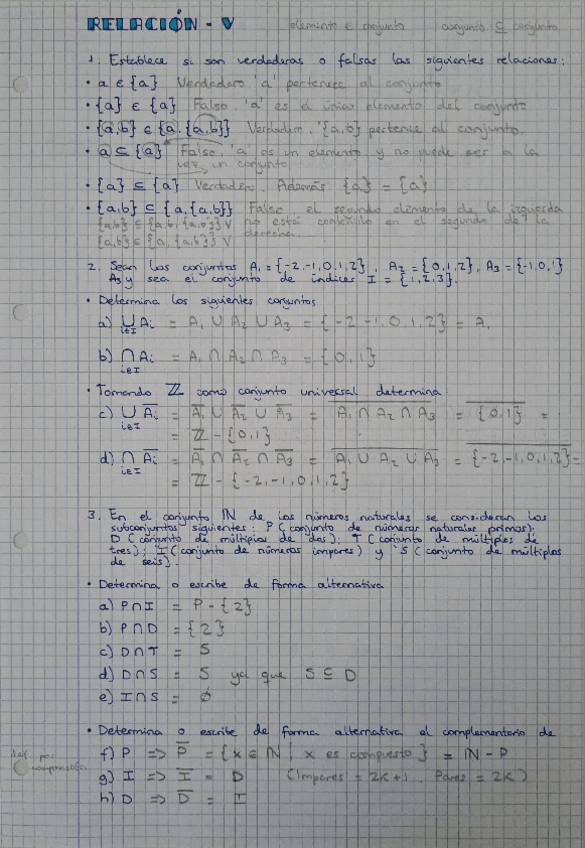 RELACIÓN - V
elemento ∈ conjunto    conjunto ⊆ conjunto
1. Establece si son verdaderas o falsas las siguientes relaciones:
• a ∈ {a} Verdadero 'a' pertenece al conjunto
• {a} ∈ {a} Falso, 'a' es el único elemento del conjunto
• {a,b} ∈ {a, {a,b}} Verdadero, '{a,b} pertenece al conjunto.
• a ⊆ {a} Falso, 'a' es un elemento y no puede ser a la
vez un conjunto
• {a} ⊆ {a} Verdadero. Además {a} = {a}
• {a,b} ⊆ {a, {a,b}} Falso, el segundo elemento de la izquierda
{a,b} ⊆ {a,b, {a,b}} V no está contenido en el segundo de la
{a,b} ∈ {a, {a,b}} V derecha.
2. Sean los conjuntos A₁ = {-2,-1,0,1,2}, A₂ = {0,1,2}, A₃ = {-1,0,1}
y sea el conjunto de índices I = {1,2,3}.
• Determina los siguientes conjuntos
a) ⋃ Ai = A₁ ∪ A₂ ∪ A₃ = {-2,-1,0,1,2} = A₁
i∈I
b) ⋂ Ai = A₁ ∩ A₂ ∩ A₃ = {0,1}
i∈I
• Tomando ℤ como conjunto universal determina:
c) ⋃ A̅i = A̅₁ ∪ A̅₂ ∪ A̅₃ = A₁ ∩ A₂ ∩ A₃ = {0,1} =
i∈I = ℤ - {0,1}
d) ⋂ A̅i = A̅₁ ∩ A̅₂ ∩ A̅₃ = A₁ ∪ A₂ ∪ A₃ = {-2,-1,0,1,2} =
i∈I = ℤ - {-2,-1,0,1,2}
3. En el conjunto ℕ de los números naturales se consideran los
subconjuntos siguientes: P (conjunto de números naturales primos);
D (conjunto de múltiplos de dos); T (conjunto de múltiplos de
tres); I (conjunto de números impares) y S (conjunto de múltiplos
de seis).
• Determina o escribe de forma alternativa
a) P∩I = P - {2}
b) P∩D = {2}
c) D∩T = S
d) D∩S = S ya que S ⊆ D
e) I∩S = ∅
• Determina o escribe de forma alternativa el complementario de
f) P => P̅ = {x ∈ ℕ | x es compuesto} = ℕ - P
g) I => I̅ = D (Impares = 2K+1, Pares = 2K)
h) D => D̅ = I